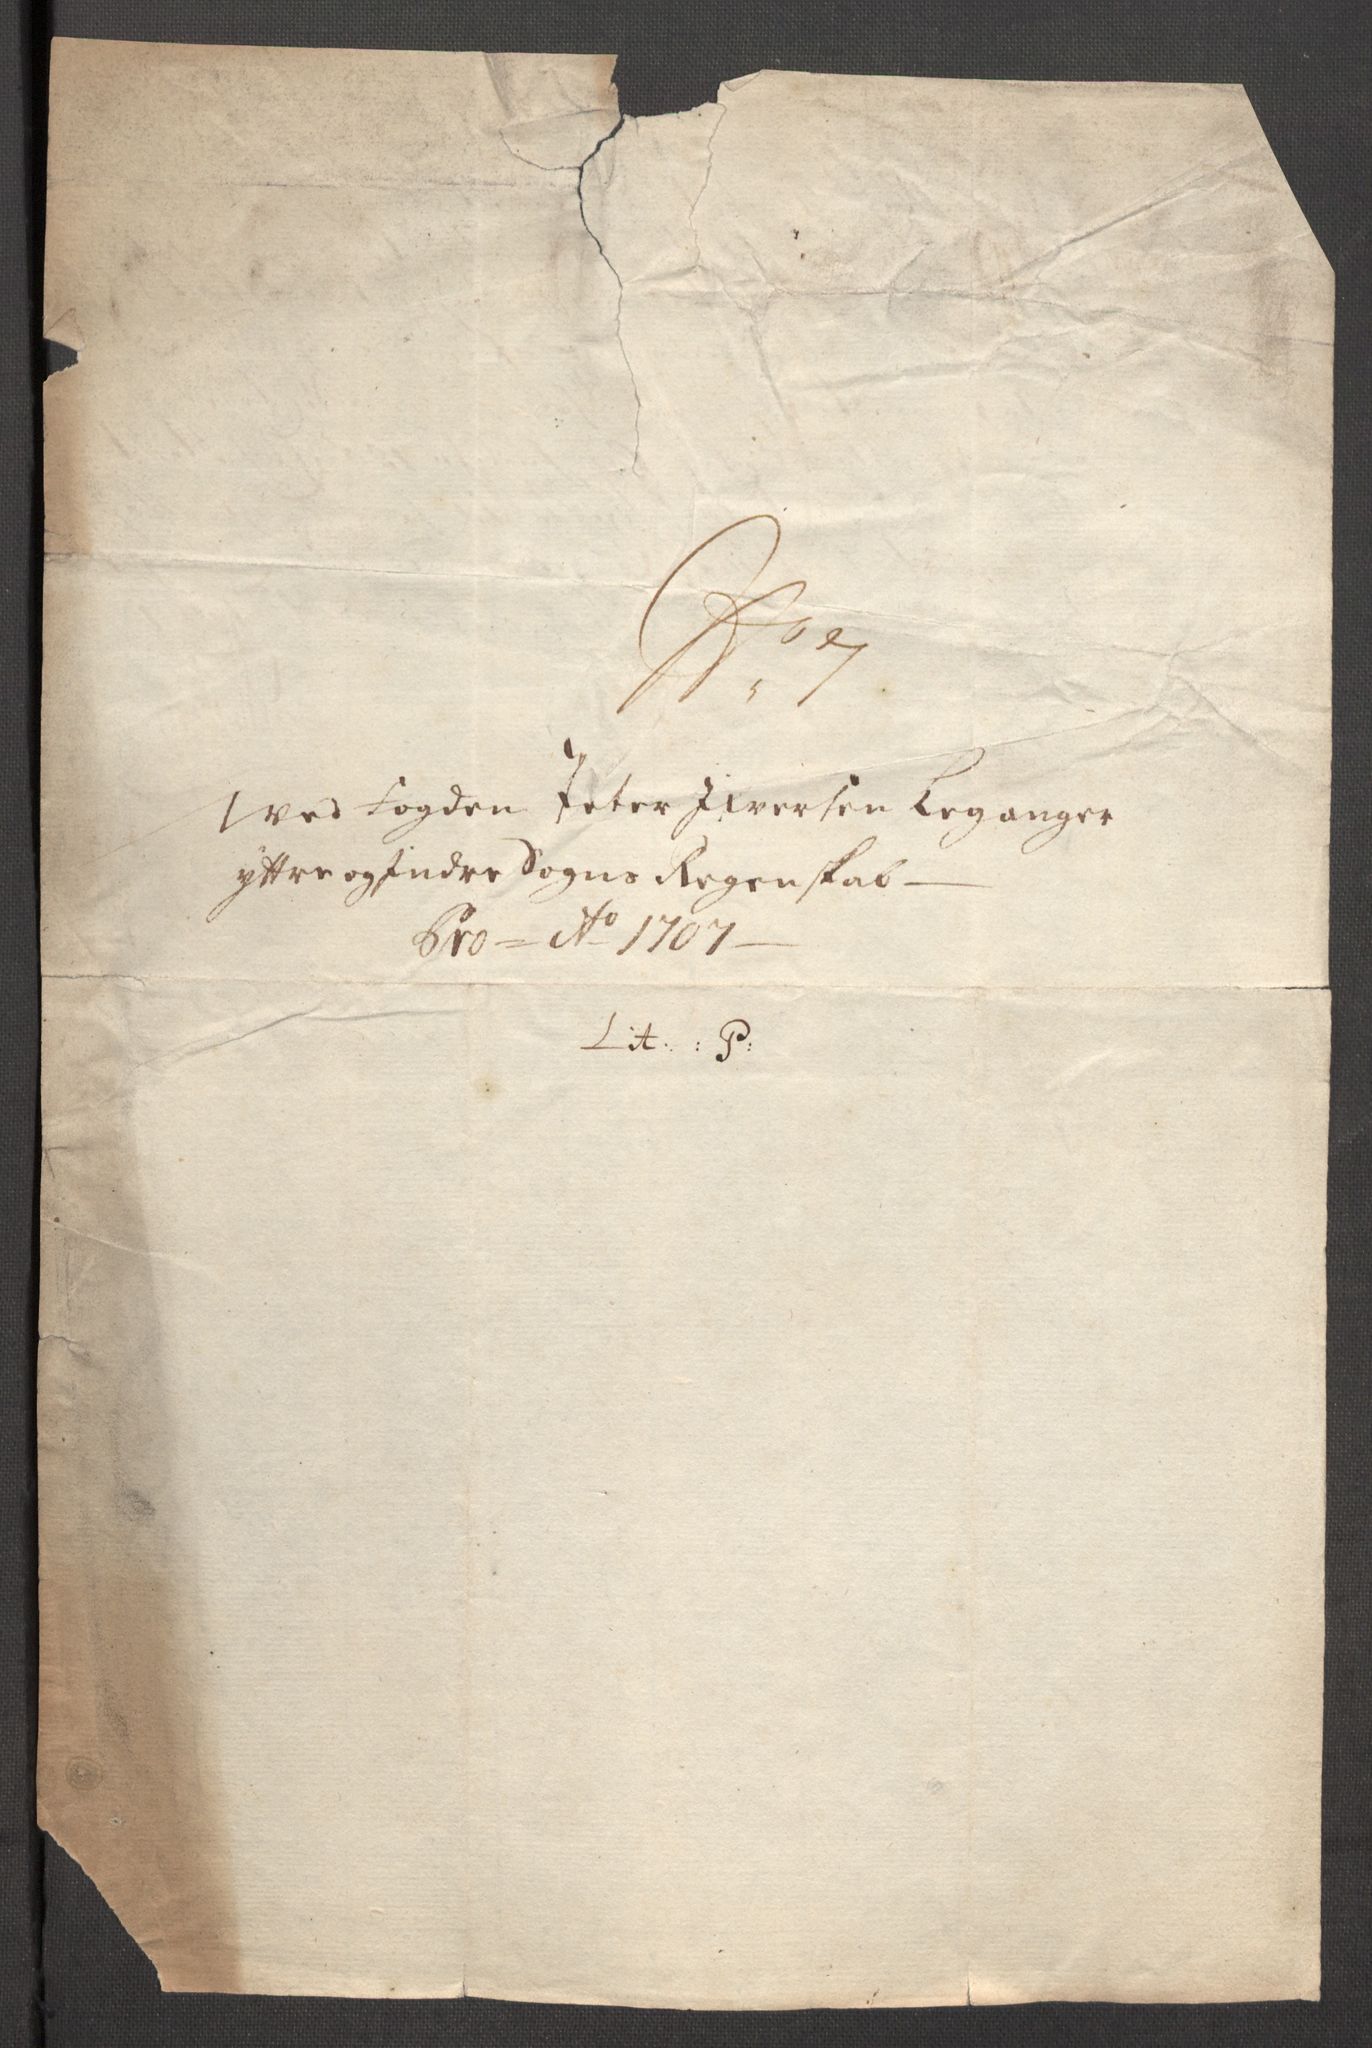 No 7
Wed Fogden Peter Iversen Leganger
yttre og Indre Sogns Regenskab
Pro = Ao 1707
Lit: : P: